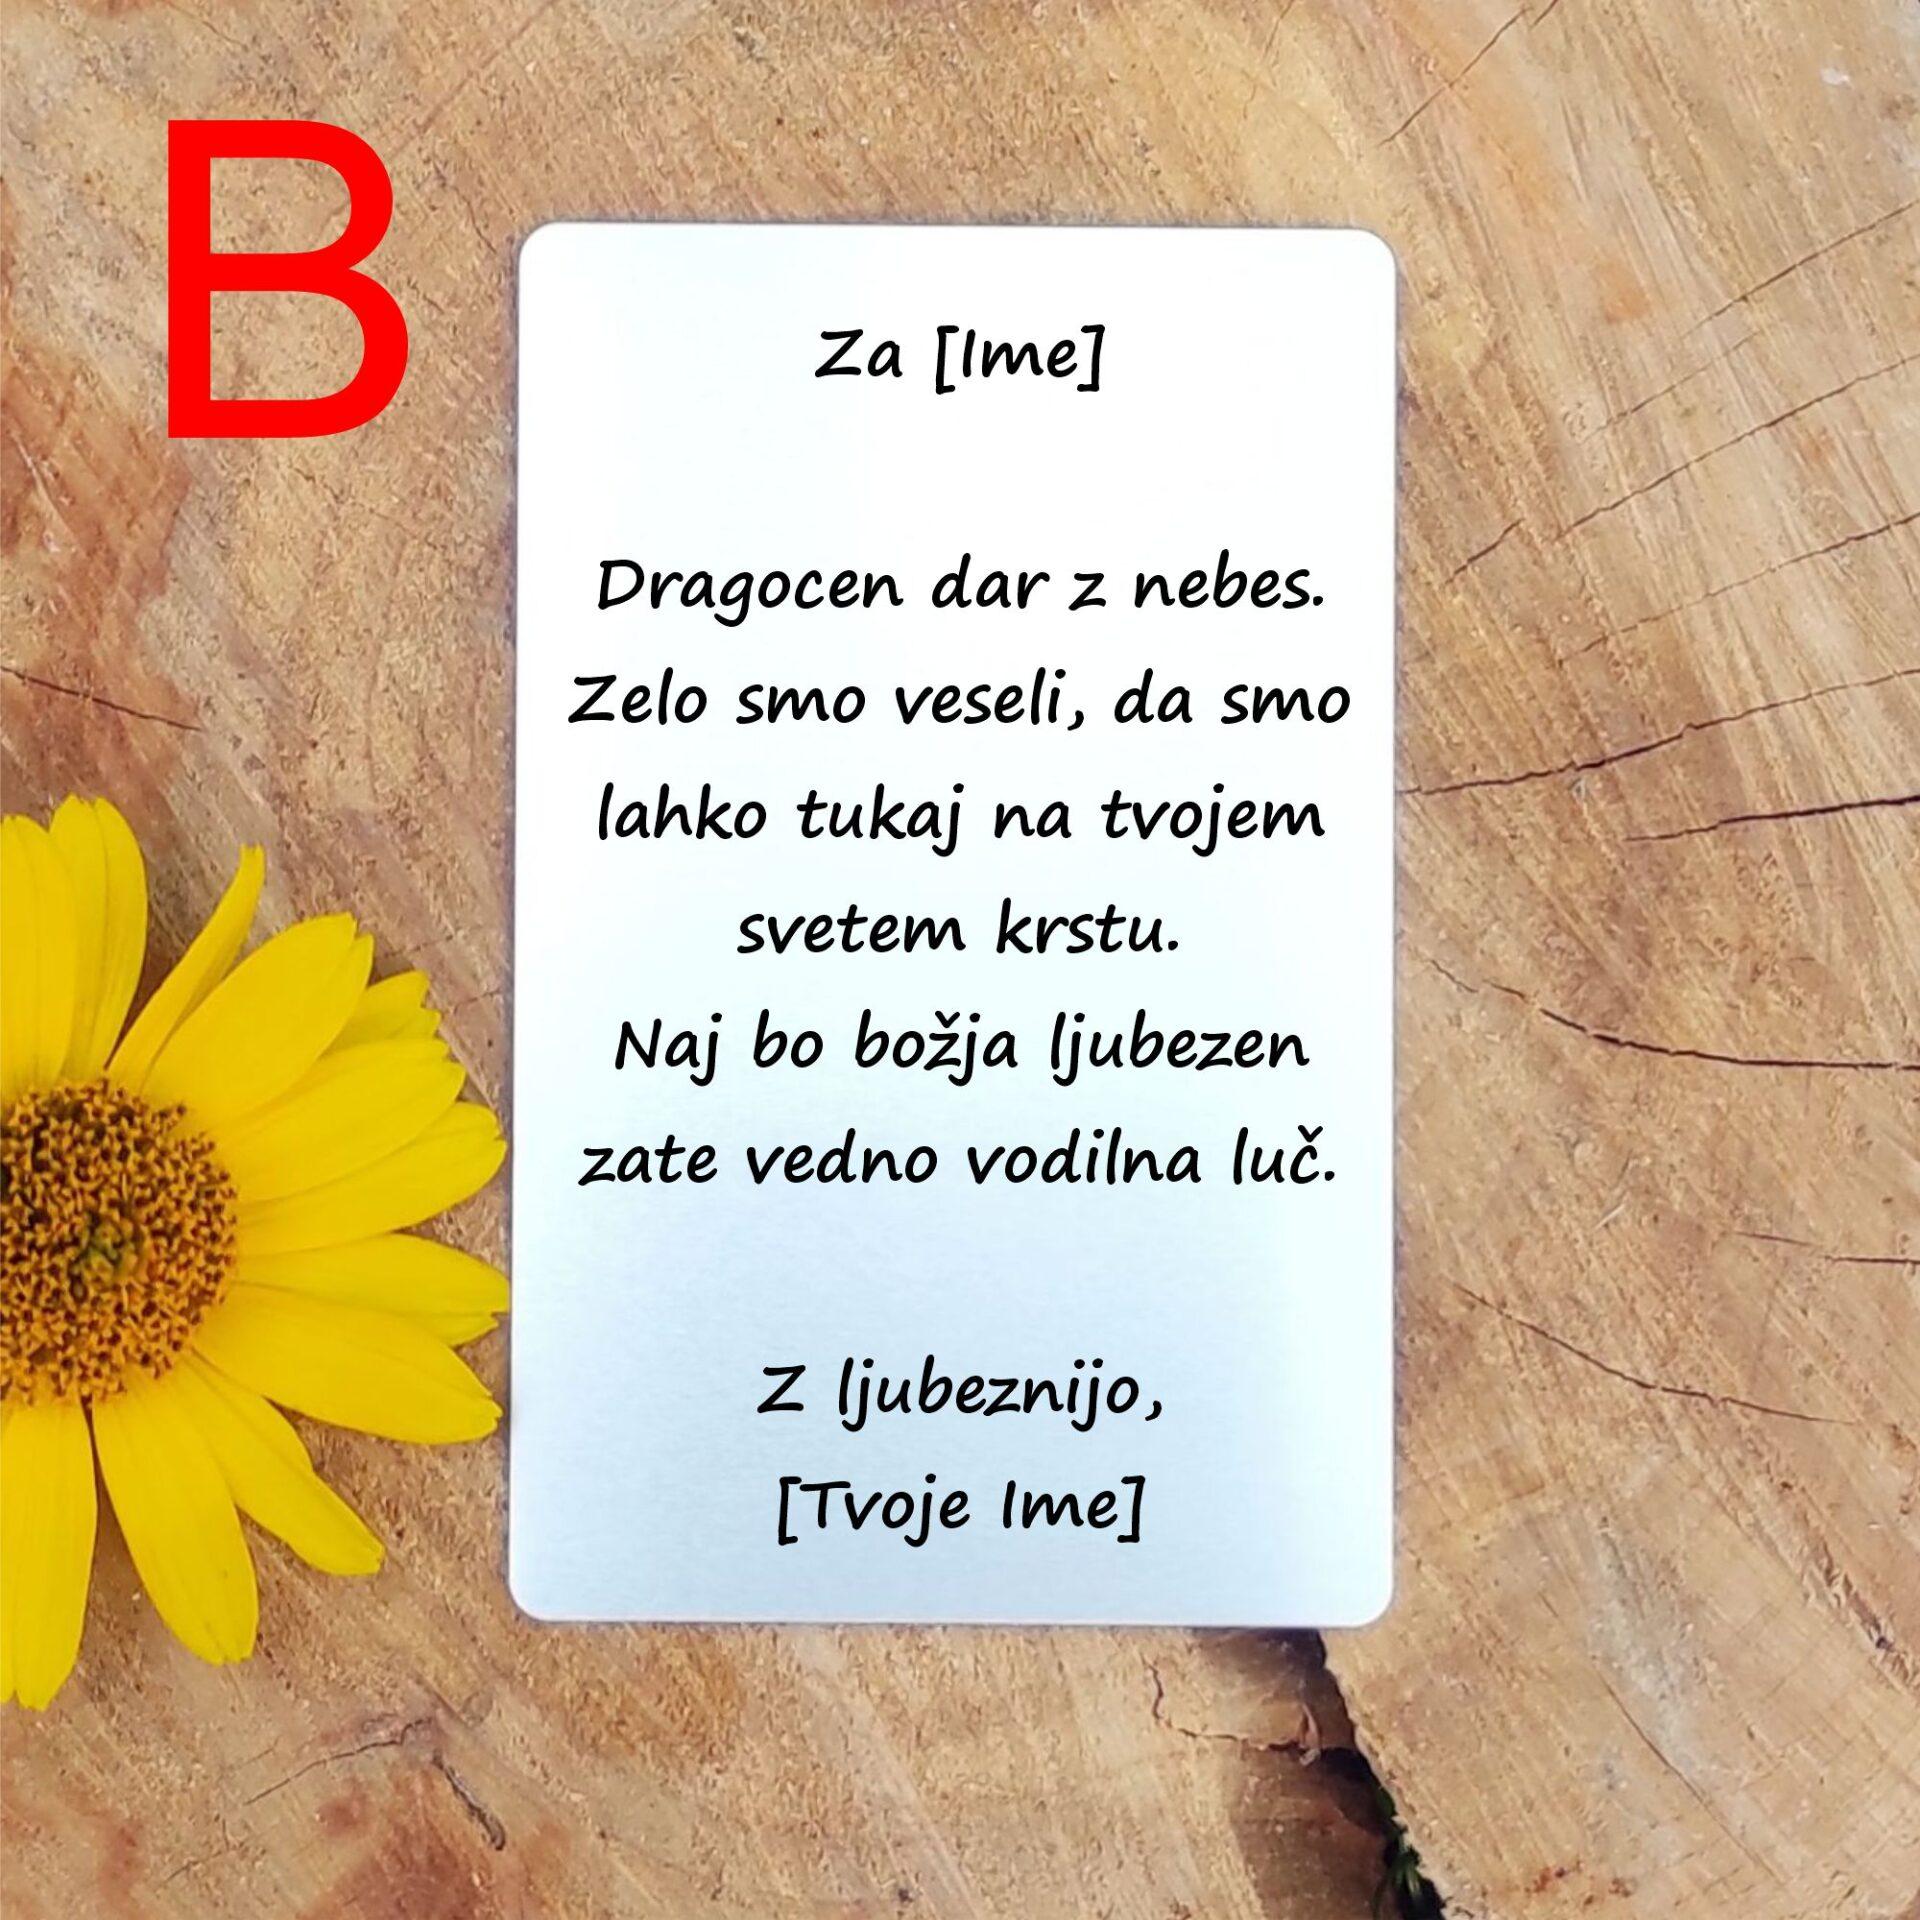 B
Za [Ime]
Dragocen dar z nebes.
Zelo smo veseli, da smo
lahko tukaj na tvojem
svetem krstu.
Naj bo božja ljubezen
zate vedno vodilna luč.
Z ljubeznijo,
[Tvoje Ime]